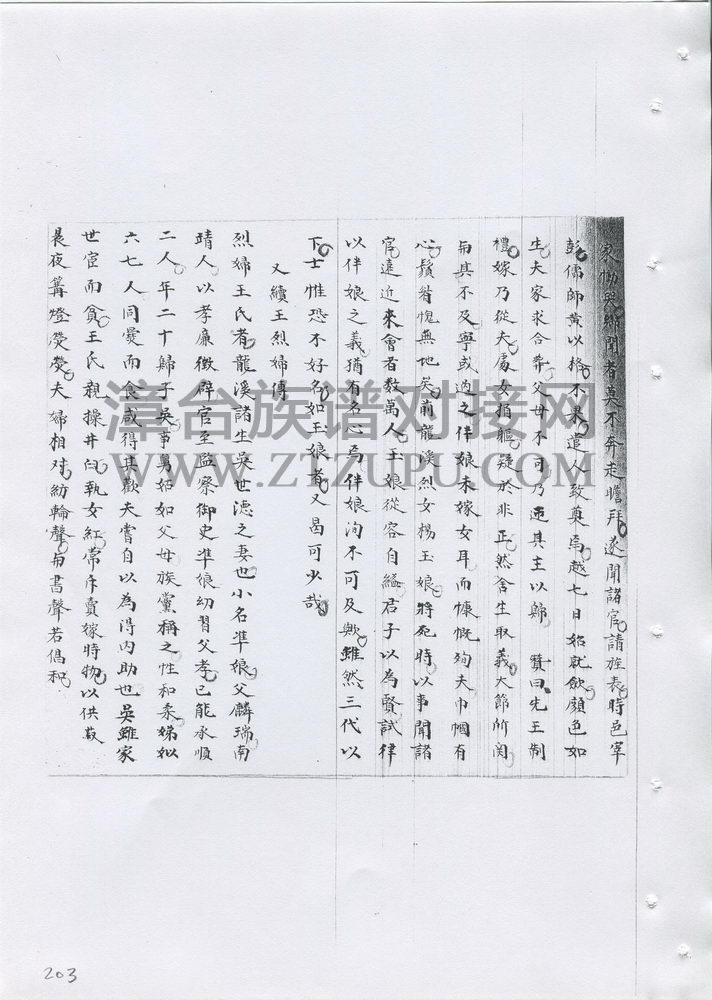 家物與鄉聞者莫不奔走瞻拜遂聞諸官請旌表時邑宰
彭儒師黄以格不果遣人致奠焉越七日始就歛顔色如
生夫家求合葬父母不可乃迎其主以歸 贊曰先王制
禮嫁乃從夫處女捐軀疑於非正然舍生取義大節所関
而具不及寧或過之伴娘未嫁女耳而慷慨殉夫巾幗有
心鬚眉愧無地矣前龍溪烈女楊玉娘将死時以事聞諸
官遠近來會者数萬人玉娘從容自縊君子以為賢試律
以伴娘之義猶有名心焉伴娘洵不可及歟雖然三代以
下士惟恐不好名如玉娘者又曷可少哉
又續王烈婦傳
烈婦王氏者龍溪諸生吳世德之妻也小名準娘父麟瑞南
靖人以孝廉徴辟官至監察御史準娘幼習父孝已能承順
二人年二十歸于吳事舅姑如父母族黨稱之性和柔娣姒
六七人同爨而食咸得其歡夫嘗自以為得内助也吳雖家
世宦而貧王氏親操井臼執女紅常斥賣嫁時物以供菽
晨夜篝燈熒熒夫婦相对紡輪聲与書聲若倡和
漳台族谱对接网
WWW.ZTZUPU.COM
203